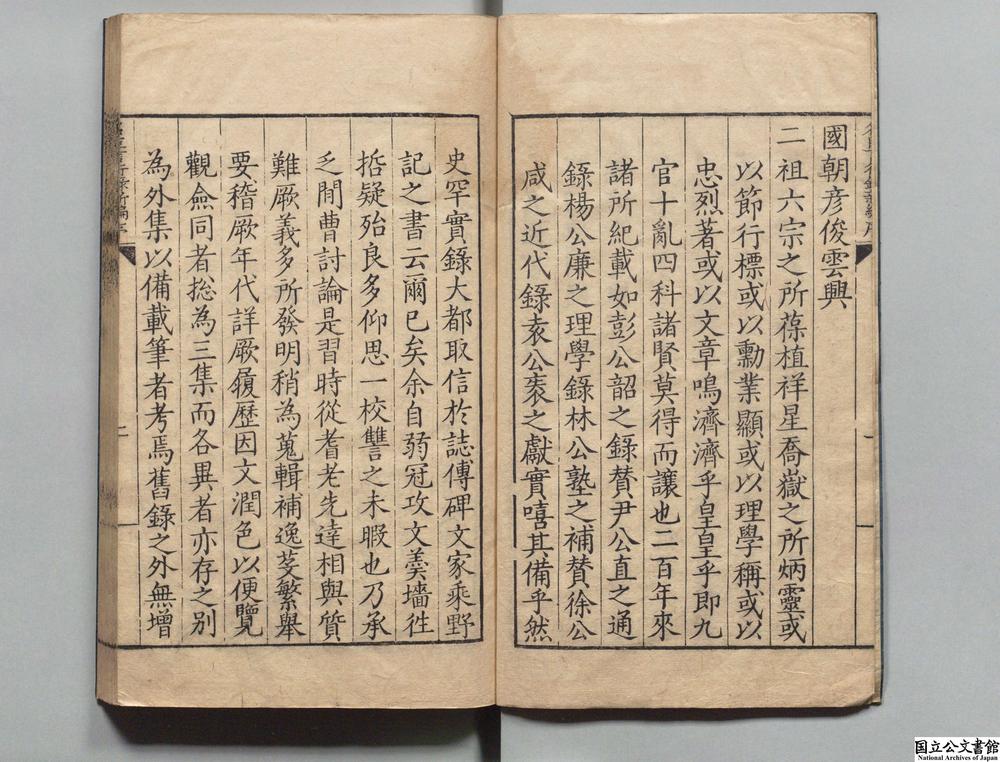 國朝彦俊雲興
二祖六宗之所葆植祥星喬嶽之所炳靈或
以節行標或以勳業顯或以理學稱或以
忠烈著或以文章鳴濟濟乎皇皇乎即九
官十亂四科諸賢莫得而讓也二百年來
諸所紀載如彭公韶之錄賛尹公直之通
錄楊公廉之理學錄林公塾之補賛徐公
咸之近代錄袁公袠之獻實嘻其備乎然
史罕實錄大都取信於誌傳碑文家乘野
記之書云爾已矣余自弱冠攻文羮墻徃
喆疑殆良多仰思一校讐之未暇也乃承
乏閒曹討論是習時從耆老先達相與質
難厥義多所發明稍為蒐輯補逸芟繁舉
要稽厥年代詳厥履歷因文潤色以便覽
觀僉同者捴為三集而各異者亦存之别
為外集以備載筆者考焉舊錄之外無增
二
国立公文書館
National Archives of Japan